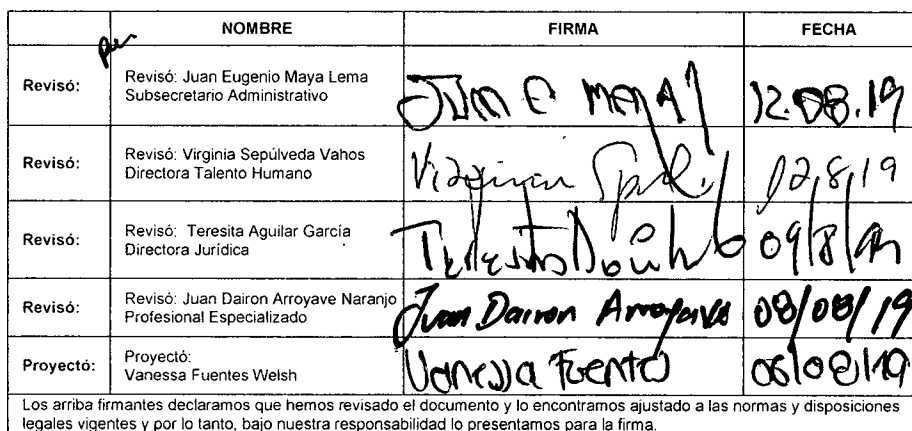 NOMBRE FIRMA FECHA
Revisó: Revisó: Juan Eugenio Maya Lema
Subsecretario Administrativo
Juan E Maya 12.08.19
Revisó: Revisó: Virginia Sepúlveda Vahos
Directora Talento Humano
Virginia 12,8,19
Revisó: Revisó: Teresita Aguilar García
Directora Jurídica
09/8/19
Revisó: Revisó: Juan Dairon Arroyave Naranjo
Profesional Especializado
Juan Dairon Arroyave 08/08/19
Proyectó: Proyectó:
Vanessa Fuentes Welsh
Vanessa Fuentes 06/08/19
Los arriba firmantes declaramos que hemos revisado el documento y lo encontramos ajustado a las normas y disposiciones
legales vigentes y por lo tanto, bajo nuestra responsabilidad lo presentamos para la firma.